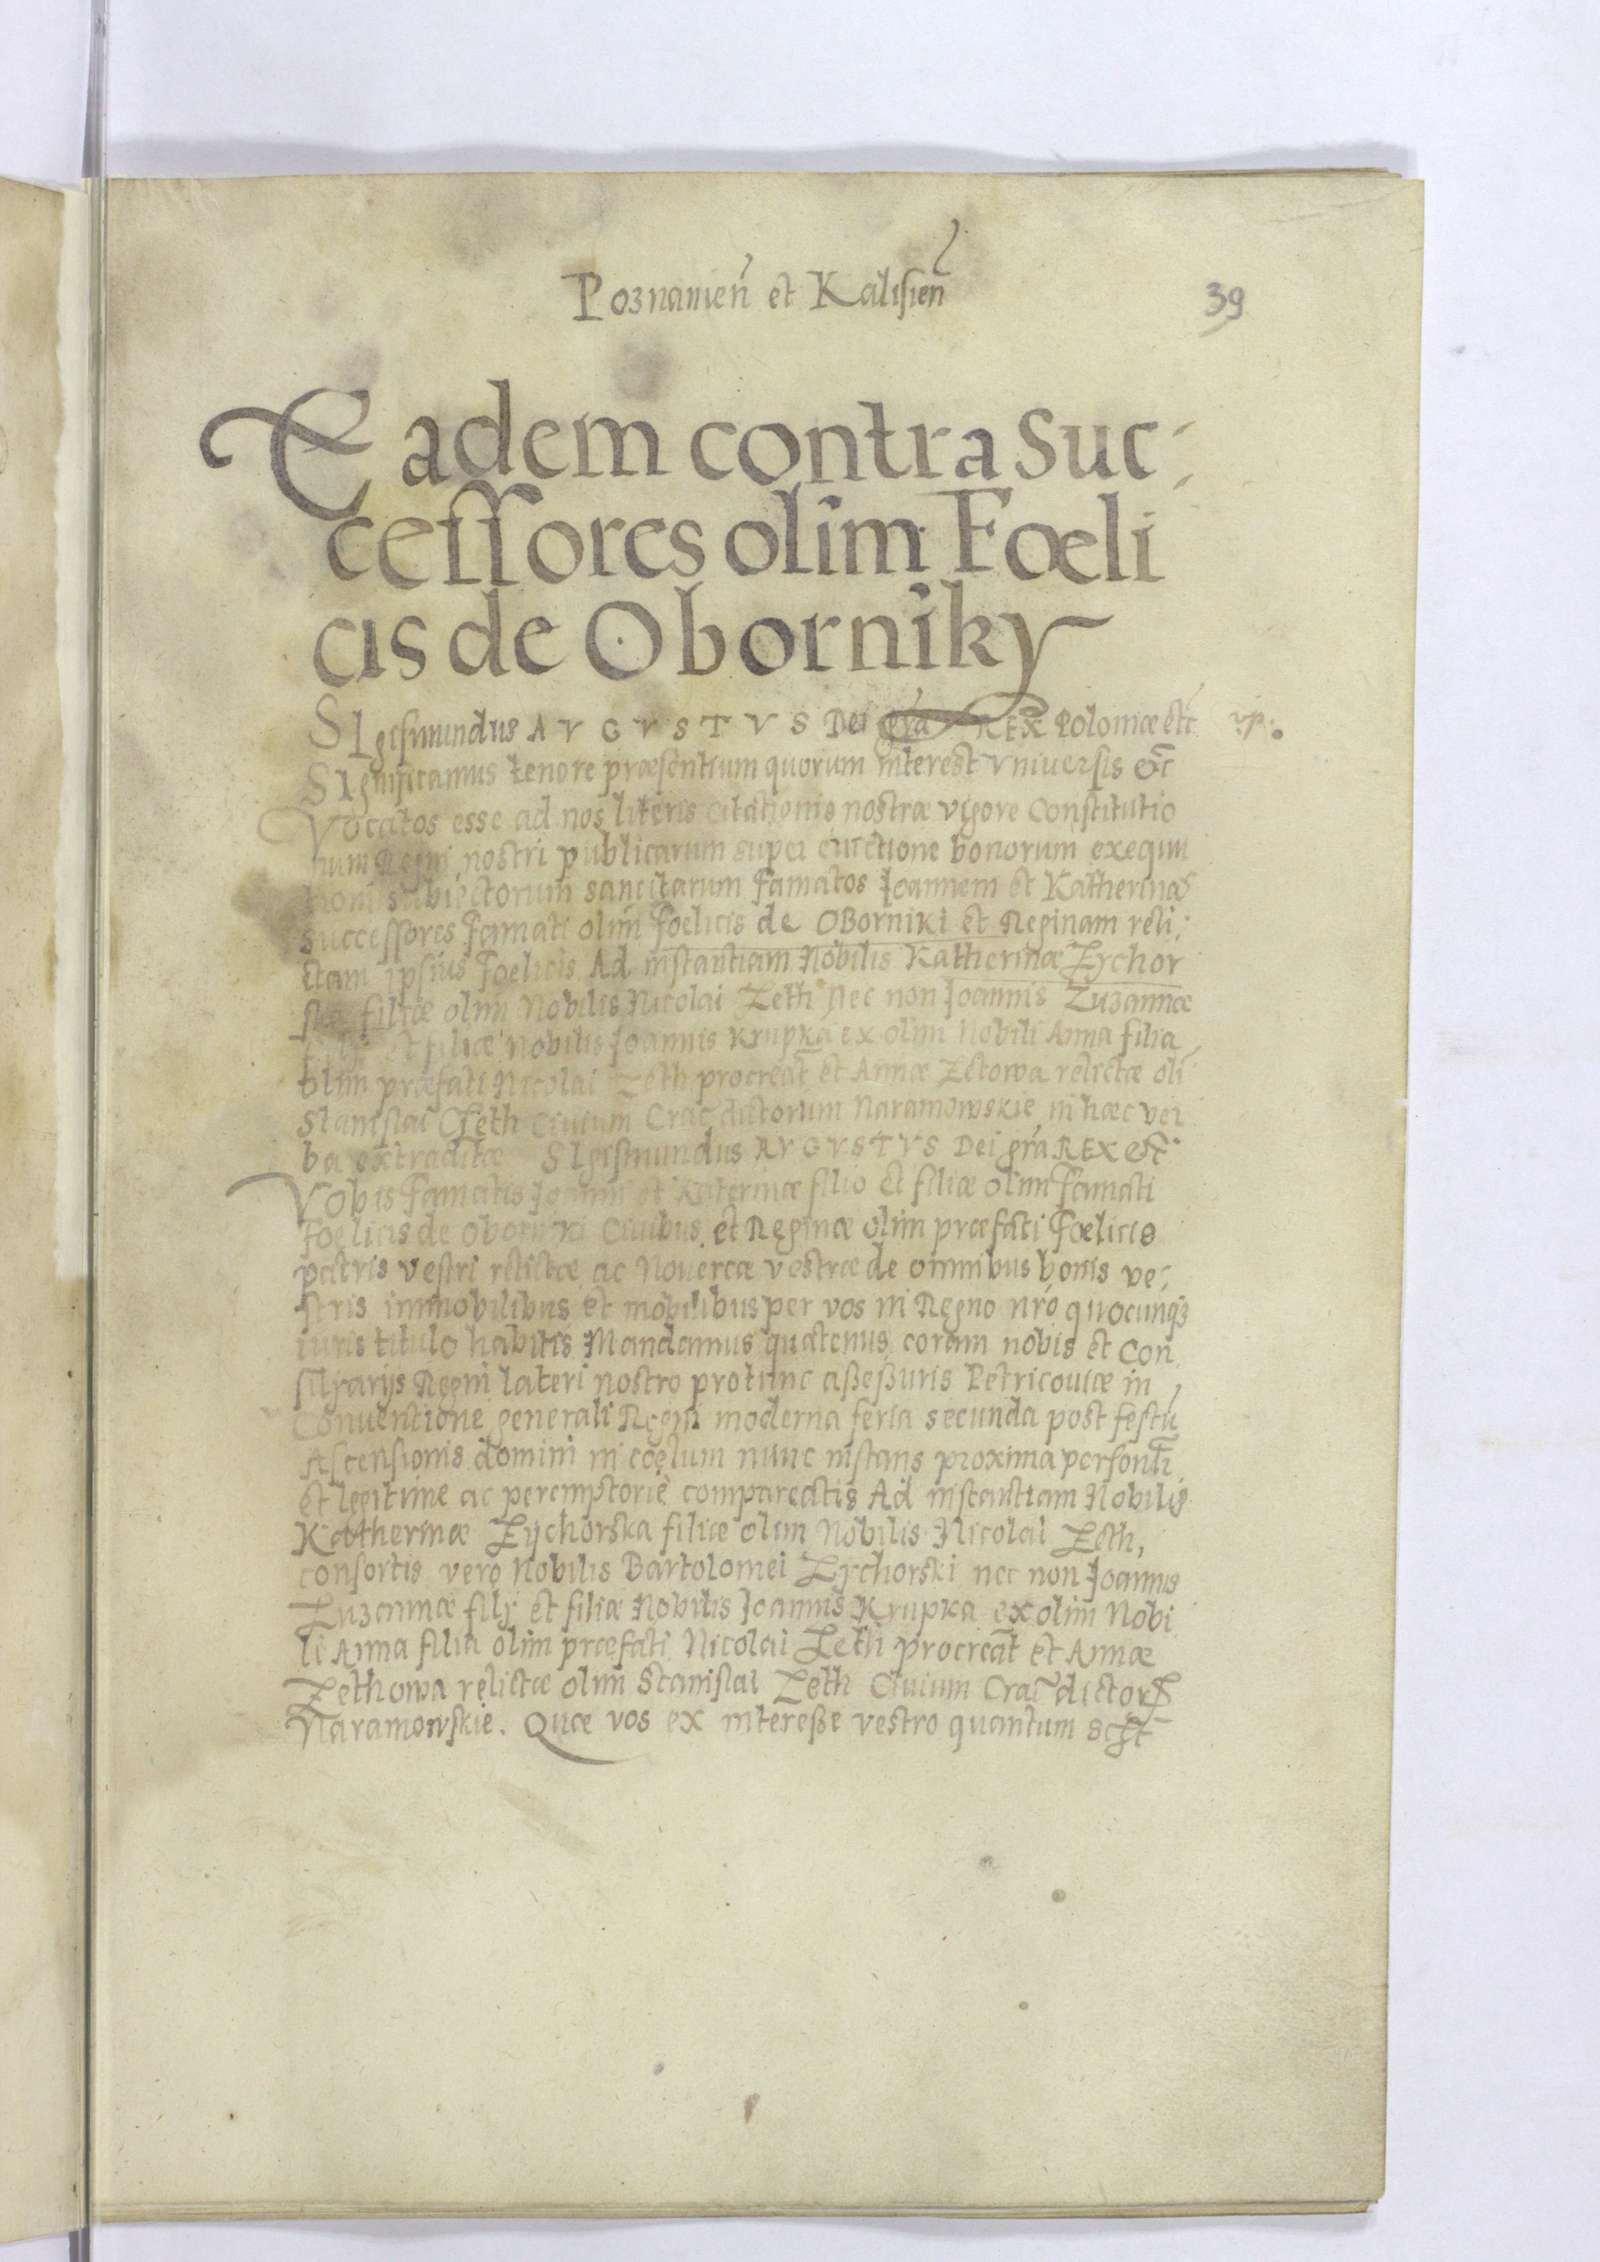 Poznanień et Kalisień
39
Eadem contra Suc:
cessores olim Foeli
cis de Oborniky
SIgismundus AVGVSTVS Dei gra REX Poloniæ etc
SIgnificamus tenore præsentium quorum interest Vniuersis &c
Vocatos esse ad nos literis citationis nostræ vigore Constitutio
num Regni nostri publicarum super euictione bonorum exequu
tioni subiectorum sancitarum Famatos Ioannem et Katherinā
successores Famati olim Foelicis de OBorniki et Reginam reli:
ctam ipsius Foelicis Ad instantiam Nobilis Katherinæ Zychor
ska filiæ olim Nobilis Nicolai Zeth Nec non Ioannis Zuzannæ
filij et filiæ Nobilis Ioannis Krupka ex olim Nobili Anna filia
olim præfati Nicolai Zeth procreat et Annæ Zetowa relictæ oli
Stanislai Zeth Ciuium Crac dictorum Naramowskie in hæc ver
ba extraditæ SIgismundus AVGVSTVS Dei gra REX etc
Vobis Famatis Ioanni et Katerinæ filio et filiæ olim Famati
Foelicis de Oborniki Ciuibus et Reginæ olim præfati Foelicis
patris vestri relictæ ac Nouercæ vestræ de omnibus bonis ve:
stris immobilibus et mobilibus per vos in Regno nro quocunqꝫ
iuris titulo habitis Mandamus quatenus coram nobis et Con
siliarijs Regni lateri nostro protunc aßeßuris Petricouiæ in
Conuentione generali Regni moderna feria secunda post festū
Ascensionis domini in cœlum nunc instans proxima personlr
et legitime ac peremptorie compareatis Ad instantiam Nobilis
Katherinæ Zychorska filiæ olim Nobilis Nicolai Zeth,
consortis vero Nobilis Bartolomei Zychorski nec non Ioannis
Zuzannæ filij et filiæ Nobilis Ioannis Krupka ex olim Nobi
li Anna filia olim præfati Nicolai Zeth procreat et Annæ
Zethowa relictæ olim Stanislai Zeth Ciuium Crac dictorꝝ
Naramowskie. Quæ vos ex intereße vestro quantum